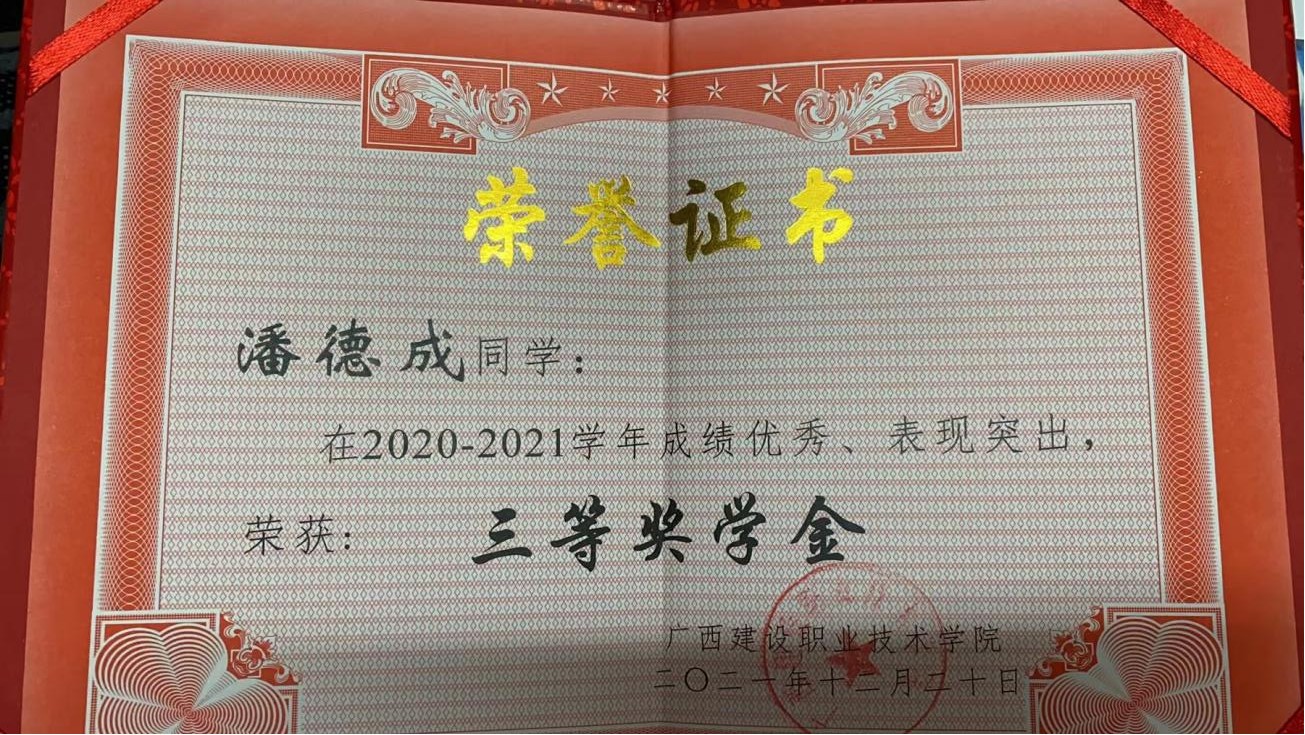 荣誉证书
潘德成同学：
在2020-2021学年成绩优秀、表现突出，
荣获： 三等奖学金
广西建设职业技术学院
二〇二一年十二月二十日